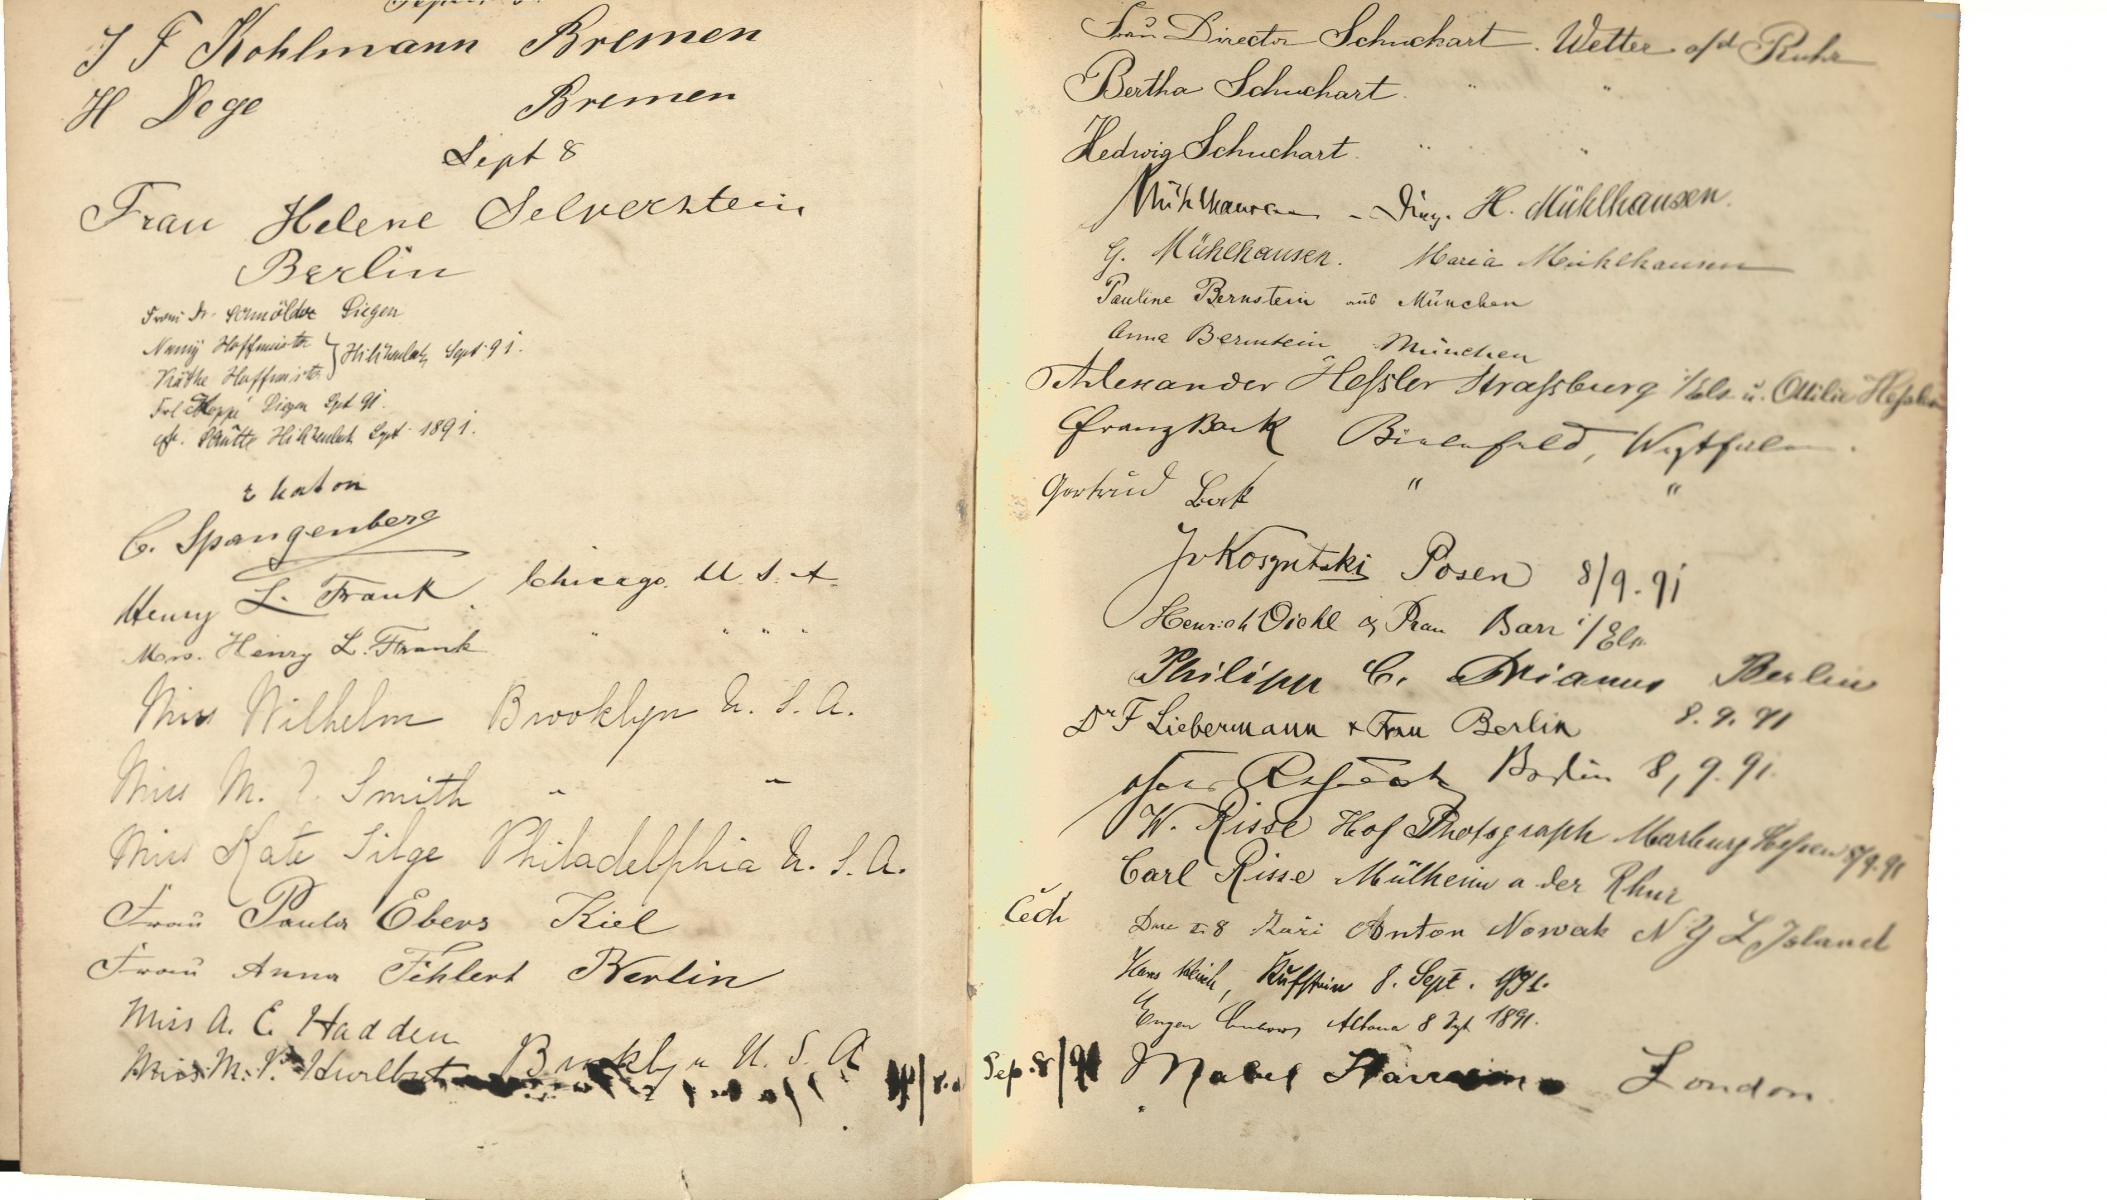 J F Kohlmann Bremen
H Dege Bremen
Sept 8
Frau Helene Selverstein
Berlin
Frau Dr. Schmölder Siegen
Nanny Hoffmeister
Käthe Hoffmeister Sept. 91.
Frl. Siegen Spt 91.
Schütte Sept. 1891.
C. Spangenberg
Henry L. Frank Chicago. U. S. A
Mrs. Henry L. Frank " " " "
Miss Wilhelm Brooklyn U. S. A.
Miss M. Smith " "
Miss Kate Silge Philadelphia U. S. A.
Frau Paula Ebers Kiel
Frau Anna Fehlert Berlin
Miss A. E. Hadden
Miss M. Hurlbut Brooklyn U. S. A
Frau Director Schuchart. Wetter a/d Ruhr
Bertha Schuchart. " "
Hedwig Schuchart. " "
Mühlhausen - H. Mühlhausen.
G. Mühlhausen. Maria Mühlhausen
Pauline Bernstein aus München
Anna Bernstein München
Alexander Heßler Straßburg i/Els. u. Ottilie Heßler
Franz Bielefeld, Westfalen.
Gertrud " "
Posen 8/9. 91
Heinrich Diehl & Frau Barr i/Els.
Philipp C. Berlin
Dr F Liebermann + Frau Berlin 8. 9. 91
Berlin 8, 9. 91.
W. Risse Hof Photograph Marburg Hessen 8/9. 91
Carl Risse Mülheim a der Rhur
Čech Dne 8 Září Anton Nowak N Y L Island
Hans Kufstein 8. Sept. 1891.
Eugen Altona 8 Spt 1891.
Sep. 8/91 Mabel London.